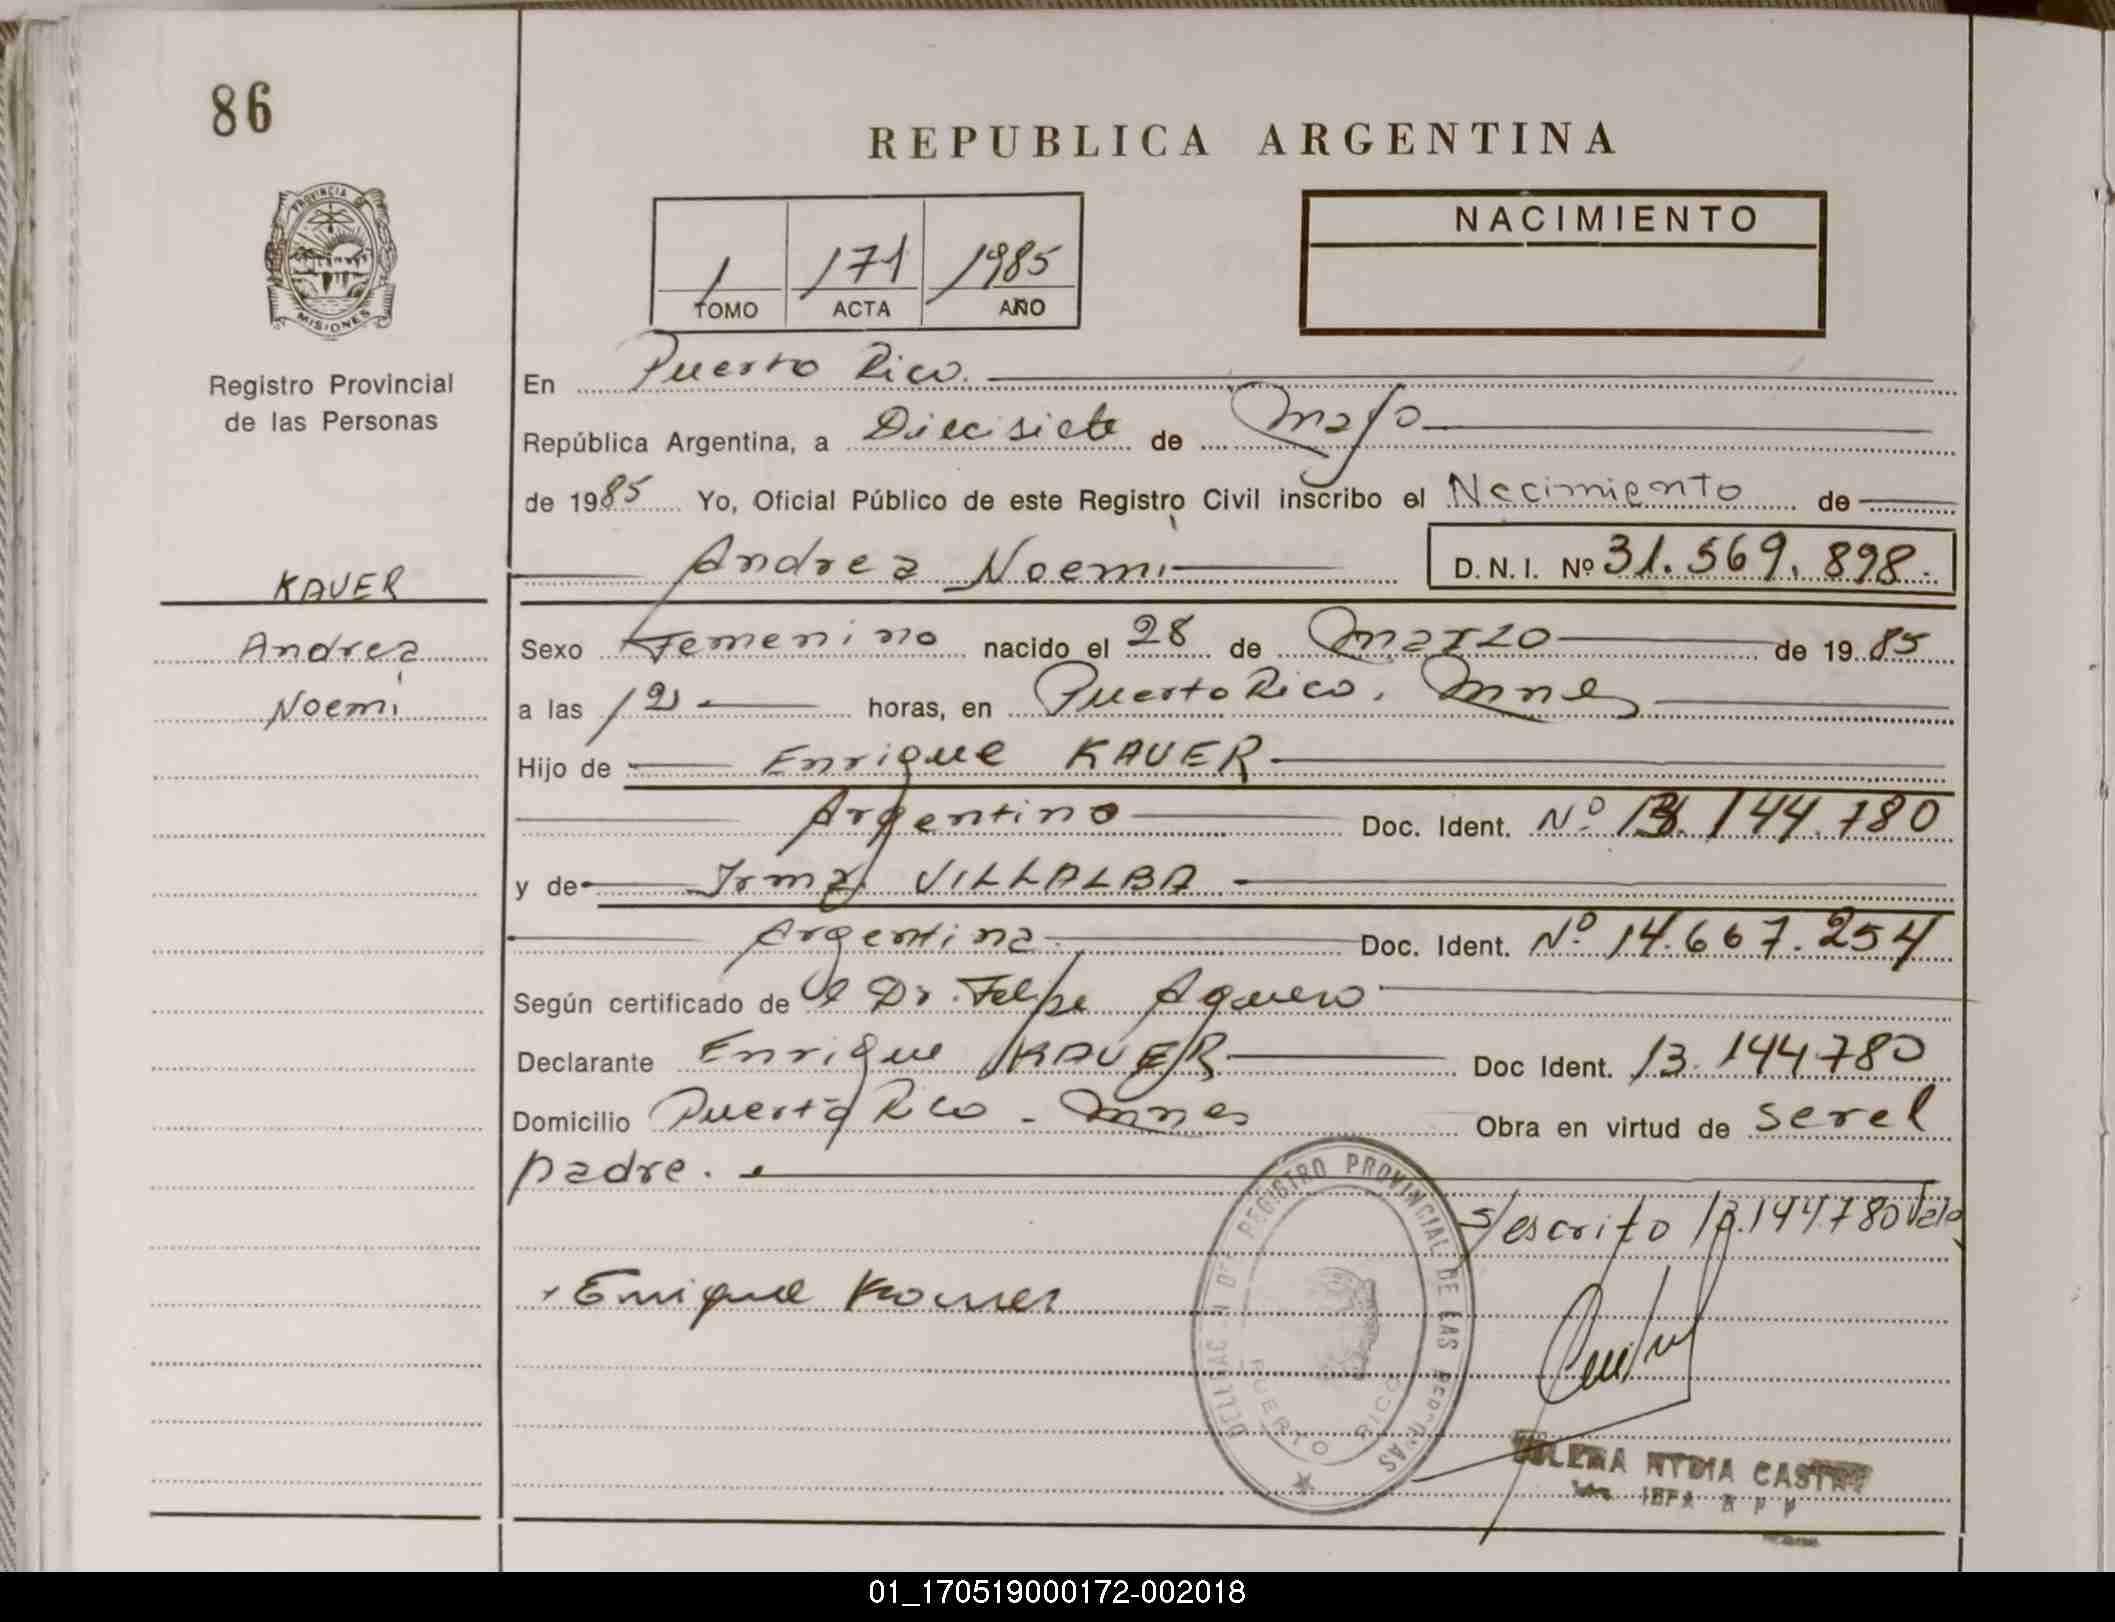 86
REPUBLICA ARGENTINA
PROVINCIA D
MISIONES
Registro Provincial
de las Personas
1 171 1985
TOMO ACTA AÑO
NACIMIENTO
En Puerto Rico.
República Argentina, a Diecisiete de Mayo
de 1985 Yo, Oficial Público de este Registro Civil inscribo el Nacimiento de
Andrea Noemi D.N.I. Nº 31.569.898.
KAUER
Andrea
Noemi
Sexo Femenino nacido el 28 de Marzo de 1985
a las 12 horas, en Puerto Rico. Mnes
Hijo de Enrique KAUER
Argentino Doc. Ident. Nº 13.144.780
y de Irma VILLALBA
Argentina Doc. Ident. Nº 14.667.254
Según certificado de el Dr. Felipe Aguero
Declarante Enrique KAUER Doc Ident. 13.144780
Domicilio Puerto Rico - Mnes Obra en virtud de ser el
padre.
s/escrito 13.144.780 Vale
Enrique Kauer
REGISTRO PROVINCIAL DE LAS
PUERTO RICO
NYDIA CASTRO
01_170519000172-002018